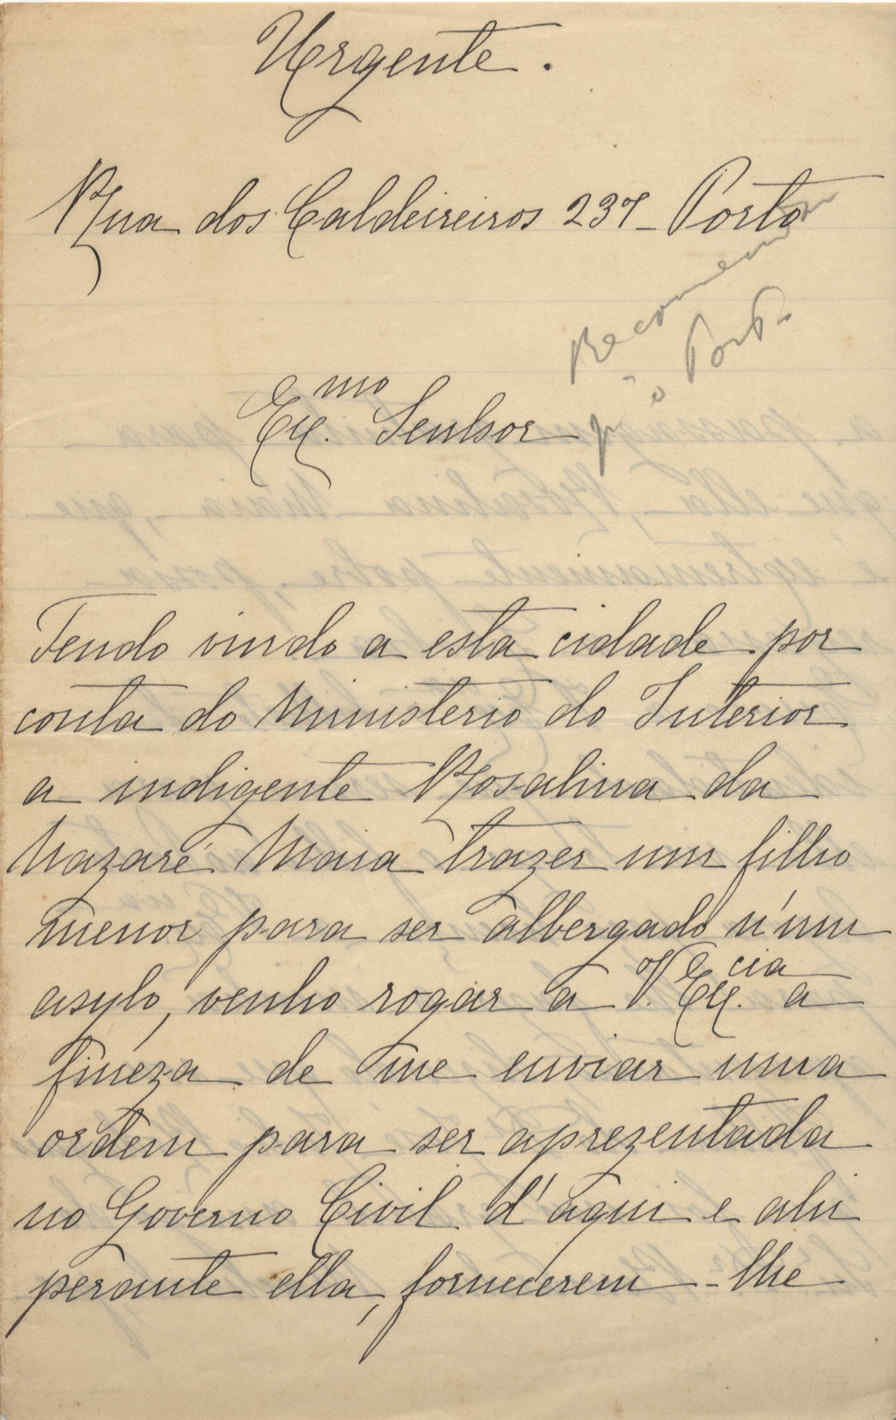 Urgente.
Rua dos Caldeireiros 237- Porto
Recommendar
p.ª o Porto
Ex.mo Senhor
Tendo vindo a esta cidade por
conta do Ministerio do Interior
a indigente Rosalina da
Nazaré Maia trazer um filho
menor para ser albergado n'um
asylo, venho rogar a V. Ex.cia a
fineza de me enviar uma
ordem para ser aprezentada
no Governo Civil d'aqui e ahi
perante ella, fornecerem-lhe